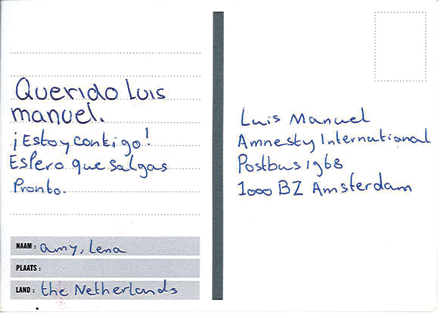 Querido Luis
manuel.
¡Estoy contigo!
Espero que salgas
Pronto.
NAAM: amy, Lena
PLAATS:
LAND: the Netherlands
Luis Manuel
Amnesty International
Postbus 1968
1000 BZ Amsterdam